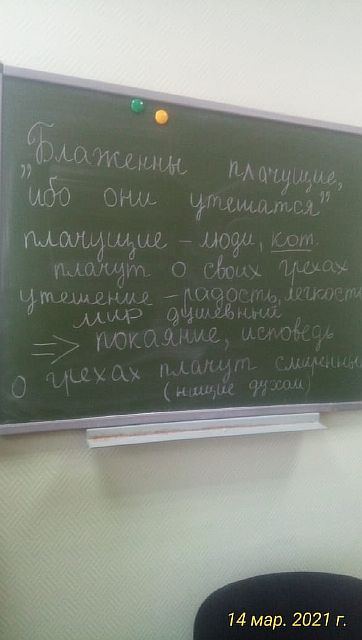 Блаженны плачущие,
"ибо они утешатся"
плачущие – люди, кот.
плачут о своих грехах
утешение – радость, легкость
мир душевный
=> покаяние, исповедь
о грехах плачут смиренные
(нищие духом)
14 мар. 2021 г.